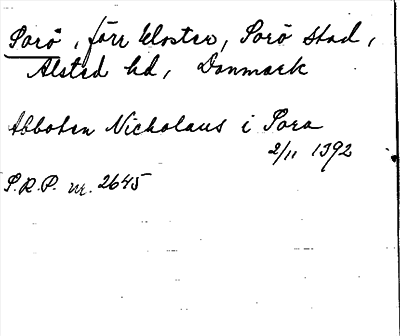 Sorö, förr kloster, Sorö stad,
Alsted hd, Danmark
Abboten Nicholaus i Sora
2/11 1392
S.R.P. nr. 2645